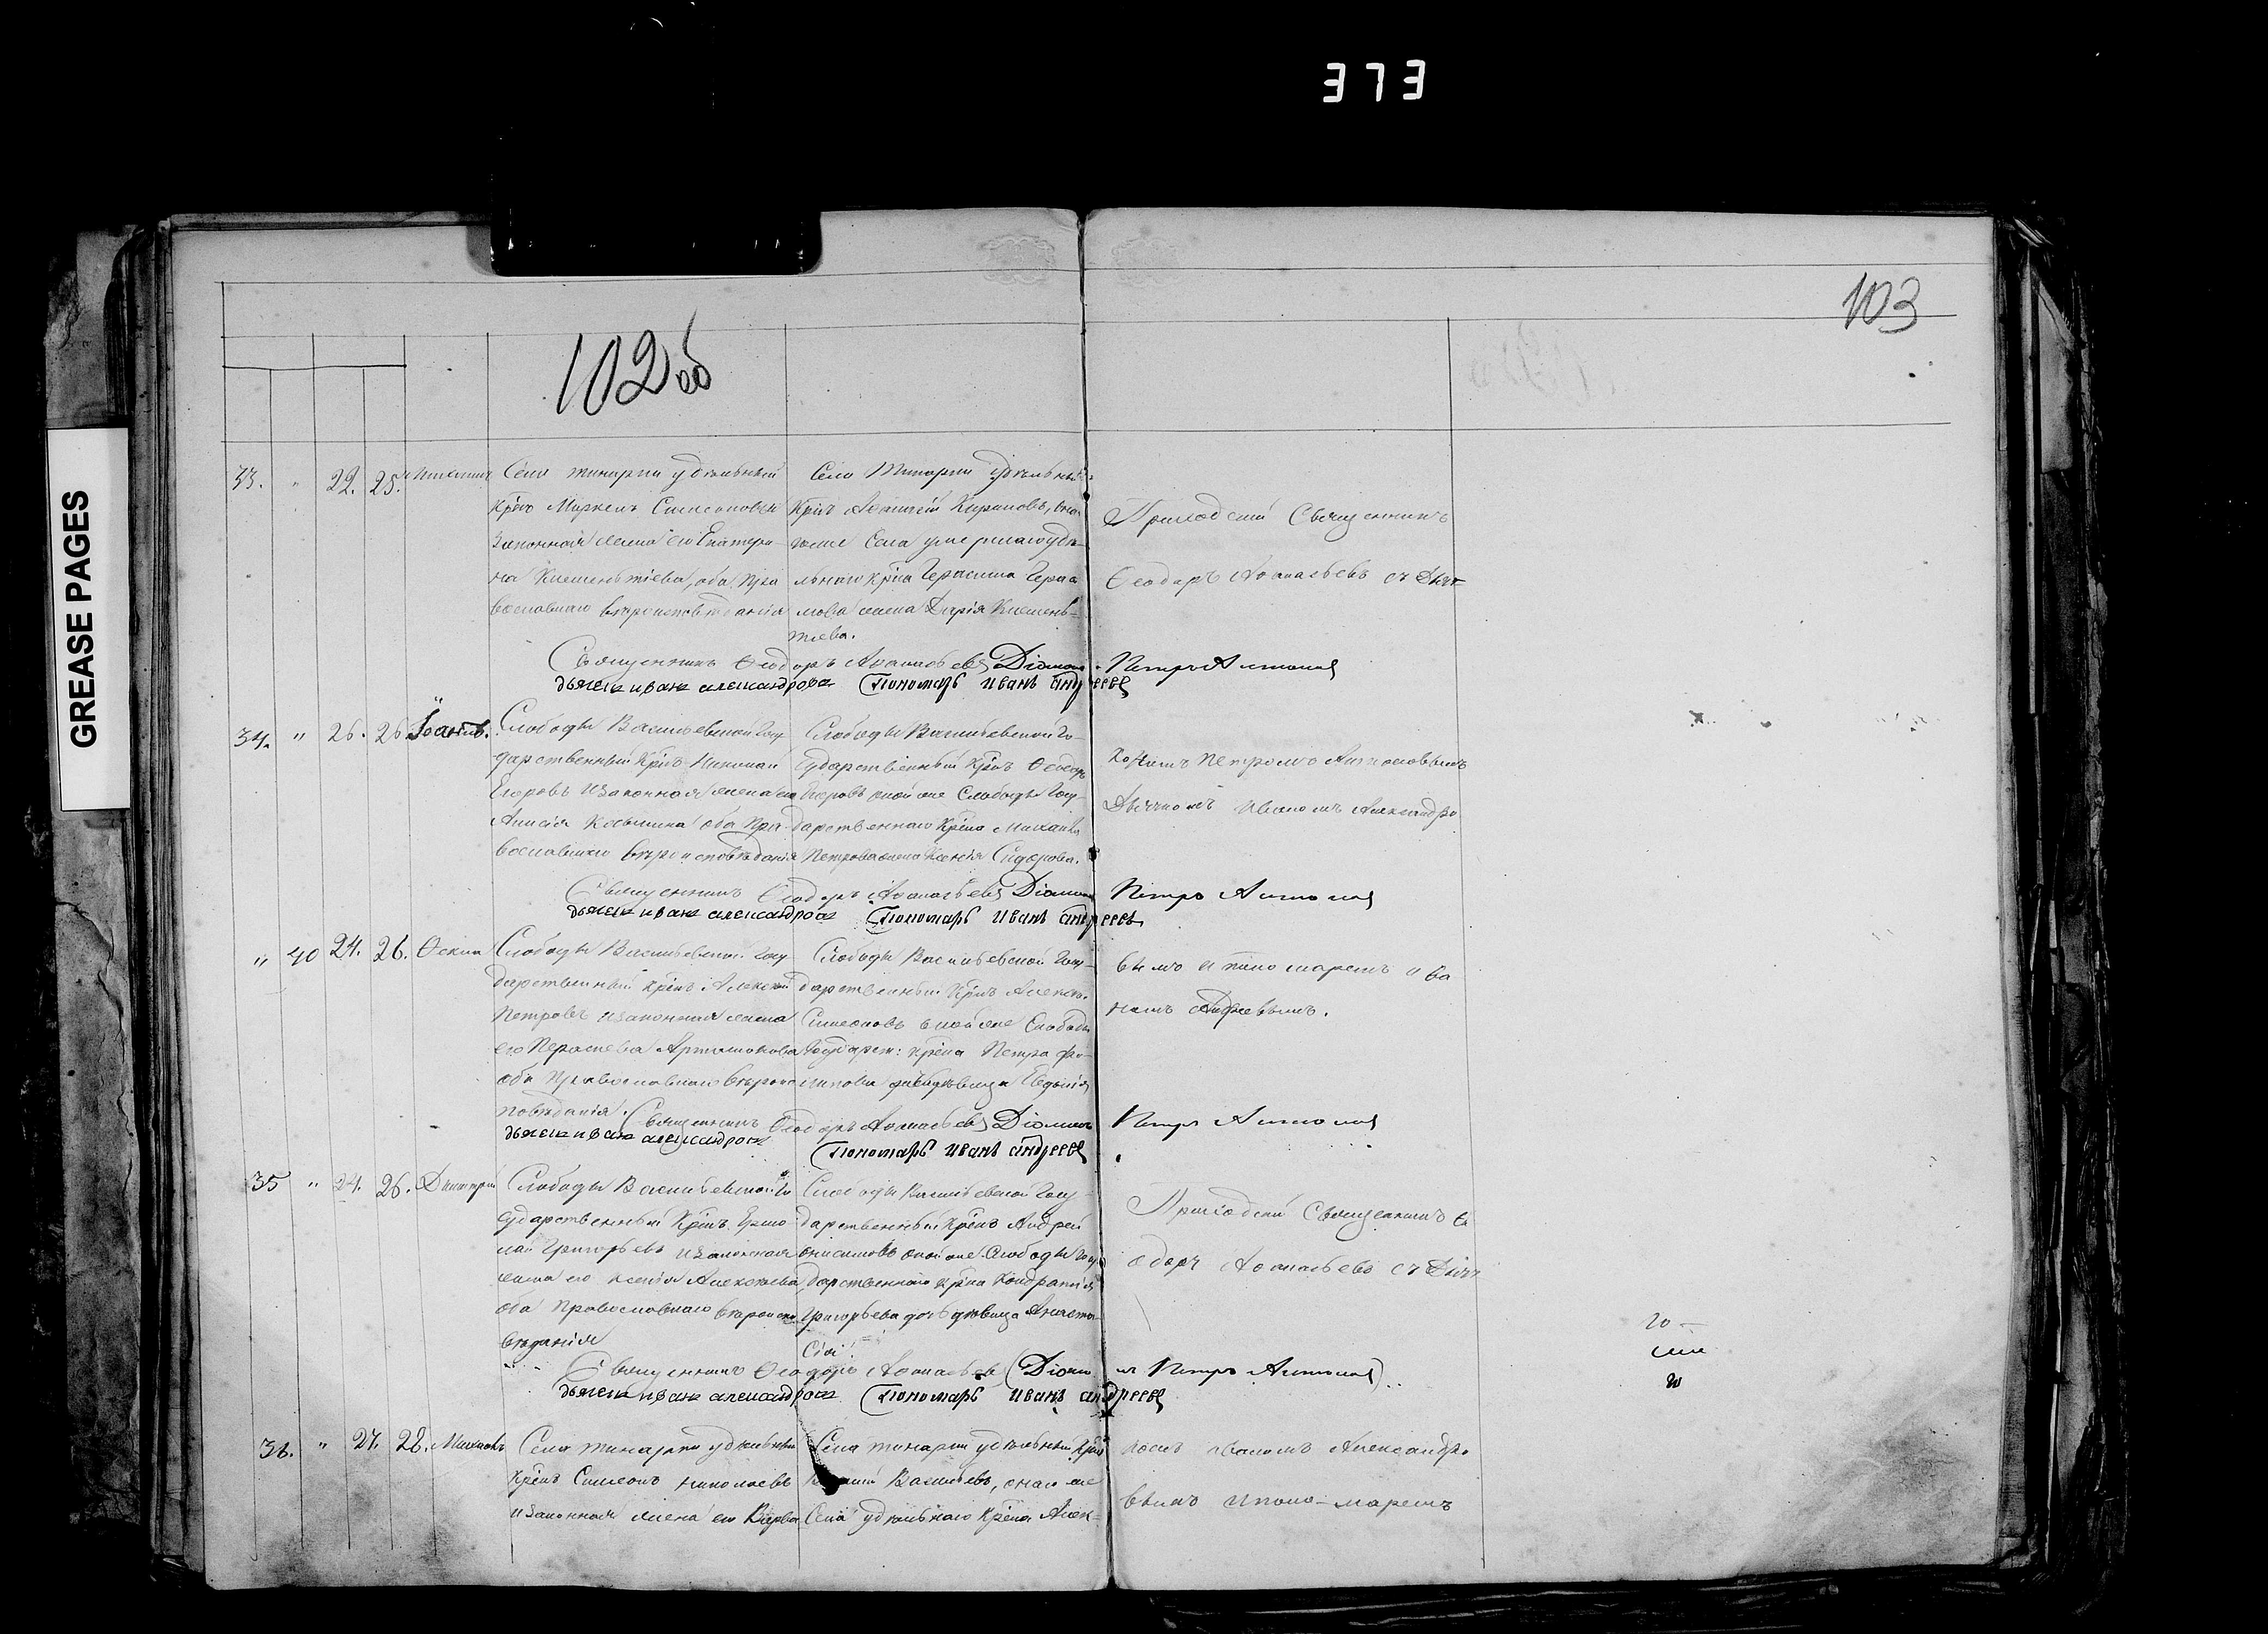 373
GREASE PAGES
103
102об
33. " 22. 25.
Село тинарпи удѣльный
Крѣнъ Маркелъ Симеоновъ и
Законная жена его Екатери-
на Клементіева, оба пра
вославнаго вѣроисповѣданія
Села Тинарпи удѣльный
Крнъ Алексѣй Кириловъ, онаго
же Села умершаго удѣ-
льнаго крна Герасима Гера
мова жена Дарія Клемень-
тіева.
Приходскій Священникъ
Ѳеодоръ Аѳанасьевъ съ Діа-
Священникъ Ѳеодоръ Аѳанасьевъ Діаконъ Петръ Антоновъ
дьячекъ иванъ александровъ Пономарь иванъ андреевъ
34. " 26. 26. Іоаннъ.
Слободы Васильевской Госу
дарственный Крнъ Николай
Егоровъ и законная жена его
Анисія Козьмина оба пра-
вославнаго вѣроисповѣданія
Слободы Васильевской Го-
сударственный Крнъ Ѳеодоръ
Петровъ оной же Слободы Госу-
дарственнаго Крна Михаила
Петрова жена Ксенія Сидорова.
кономъ Петромъ Антоновымъ
Дьячкомъ Иваномъ Александро
Священникъ Ѳеодоръ Аѳанасьевъ Діаконъ Петръ Антоновъ
дьячекъ иванъ александровъ Пономарь иванъ андреевъ
" 40 24. 26. Ѳекла
Слободы Васильевской Госу-
дарственный крнъ Алексѣй
Петровъ и законная жена
его Параскева Артамонова
оба Православнаго вѣроис
повѣданія.
Слободы Васильевской Госу-
дарственный Крнъ Алексѣй
Симеоновъ оной же Слободы
Государст: крна Петра Фи-
липпова дочь дѣвица Евдокія
вымъ и пономаремъ Ива
номъ Андреевымъ.
Священникъ Ѳеодоръ Аѳанасьевъ Діаконъ Петръ Антоновъ
дьячекъ иванъ александровъ
Пономарь иванъ андреевъ
35 " 24. 26. Димитрій
Слободы Васильевской Го
сударственный Крнъ Ермо
лай Григорьевъ и законная
жена его Ксенія Алексѣева,
оба Православнаго вѣроиспо
вѣданія
Слободы Васильевской Госу-
дарственный Крнъ Андрей
Онисимовъ оной же Слободы Госу
дарственнаго крна Кондратія
Григорьева дочь дѣвица Анаста-
сія
Приходскій Священникъ Ѳе
одоръ Аѳанасьевъ съ Діа
Священникъ Ѳеодоръ Аѳанасьевъ Діаконъ Петръ Антоновъ
дьячекъ иванъ александровъ Пономарь иванъ андреевъ
36. " 27. 28. Михаилъ
Села тинарпи удѣльный
Крнъ Симеонъ Николаевъ
и законная жена его Варва
Села тинарпи удѣльный Крнъ
Васильевъ, онаго же
Села удѣльнаго Крна Алек-
комъ Иваномъ Александро
вымъ и поно-маремъ